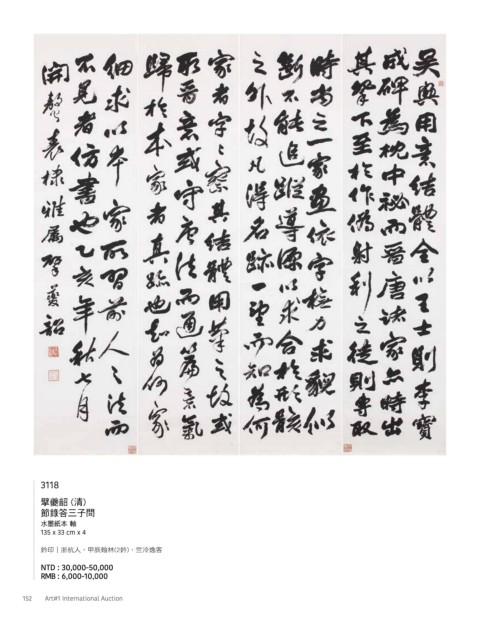 吳興用意結體全以王士則李寶
成碑為枕中祕而晉唐諸家亦時出
其筆下至於作偽射利之徒則專取
時尚之一家畫依字橅力求貌似
斷不能追蹤導源以求合於形骸
之外故凡得名跡一望而知為何
家者字〻察其結體用筆之故或
取晉意或守唐法而通篇意氣
歸於本家者真跡也知為何家
細求以本家所習前人之法而
不見者仿書也乙亥年秋七月
棣雅屬 夔韶
3118
夔韶 (清)
節錄答三子問
水墨紙本 軸
135 x 33 cm x 4
鈐印｜浙杭人、甲辰翰林(2鈐)、竺泠逸客
NTD : 30,000-50,000
RMB : 6,000-10,000
152 Art#1 International Auction